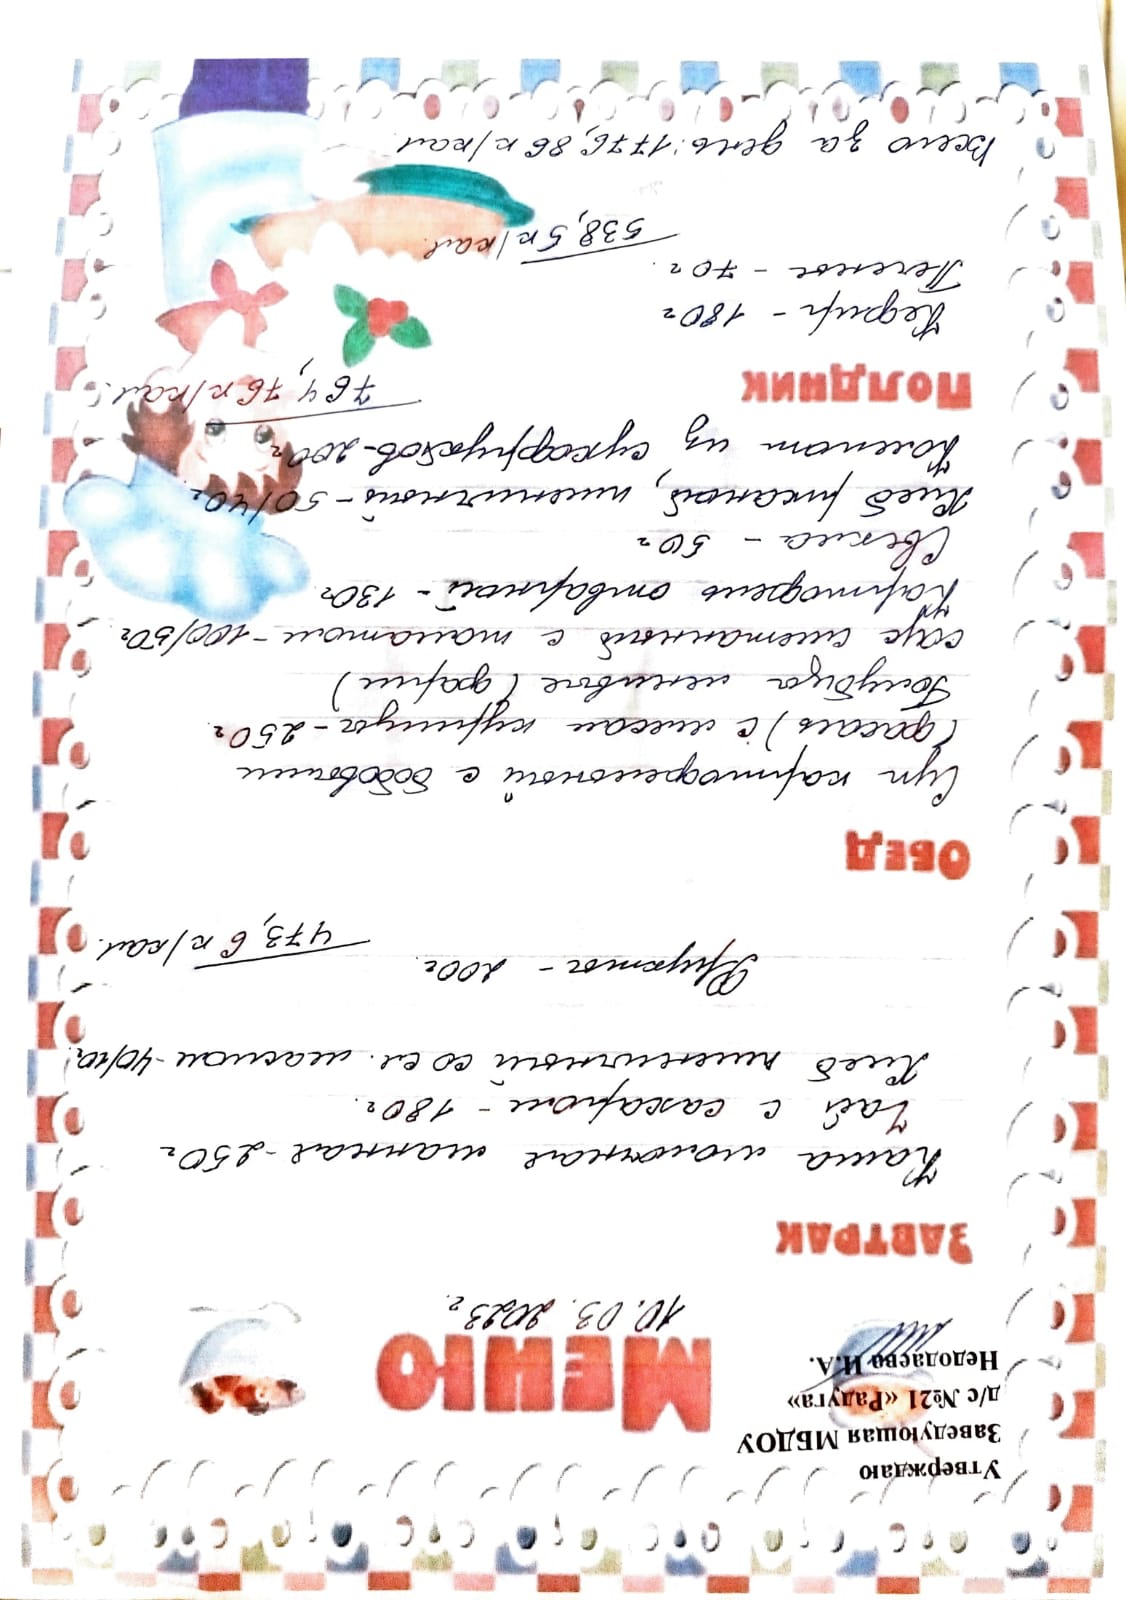 Утверждаю
Заведующая МБДОУ
д/с №21 «Радуга»
Недодаева И.А.
Меню
10.03.2023г.
Завтрак
Каша молочная манная - 250г
Чай с сахаром - 180г.
Хлеб пшеничный со сл. маслом - 40/10г.
Фрукты - 200г.
473,6 к/кал.
Обед
Суп картофельный с бобовыми
(фасоль) с мясом курицы - 250г.
Голубцы ленивые (фарш)
соус сметанный с томатом - 100/50г.
Картофель отварной - 130г.
Свекла - 50г
Хлеб ржаной, пшеничный - 50/40г.
Компот из сухофруктов - 200г
764,76 к/кал.
Полдник
Кефир - 180г
Печенье - 70г.
538,5 к/кал.
Всего за день: 1776,86 к/кал.